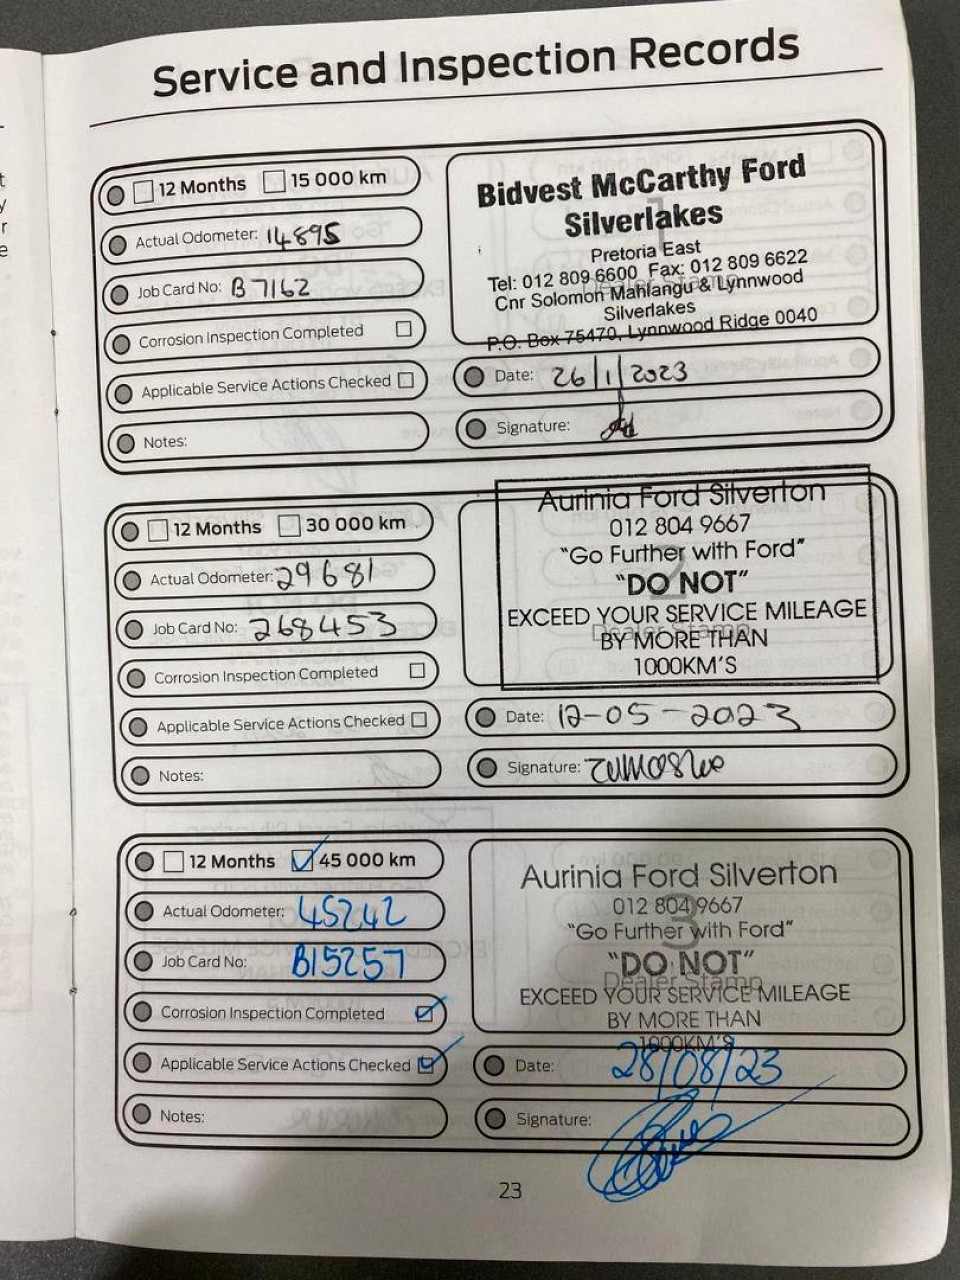 Service and Inspection Records
12 Months 15 000 km
Actual Odometer: 14895
Job Card No: B7162
Corrosion Inspection Completed
Applicable Service Actions Checked
Notes:
Bidvest McCarthy Ford
Silverlakes
Pretoria East
Tel: 012 809 6600 Fax: 012 809 6622
Cnr Solomon Mahlangu & Lynnwood
Silverlakes
P.O. Box 75470, Lynnwood Ridge 0040
1
Dealer Stamp
Date: 26/1/2023
Signature:
12 Months 30 000 km
Actual Odometer: 29681
Job Card No: 268453
Corrosion Inspection Completed
Applicable Service Actions Checked
Notes:
Aurinia Ford Silverton
012 804 9667
"Go Further with Ford"
"DO NOT"
EXCEED YOUR SERVICE MILEAGE
BY MORE THAN
1000KM'S
2
Dealer Stamp
Date: 12-05-2023
Signature:
12 Months 45 000 km
Actual Odometer: 45242
Job Card No: B15257
Corrosion Inspection Completed
Applicable Service Actions Checked
Notes:
Aurinia Ford Silverton
012 804 9667
"Go Further with Ford"
"DO NOT"
EXCEED YOUR SERVICE MILEAGE
BY MORE THAN
1000KM'S
3
Dealer Stamp
Date: 28/08/23
Signature:
23